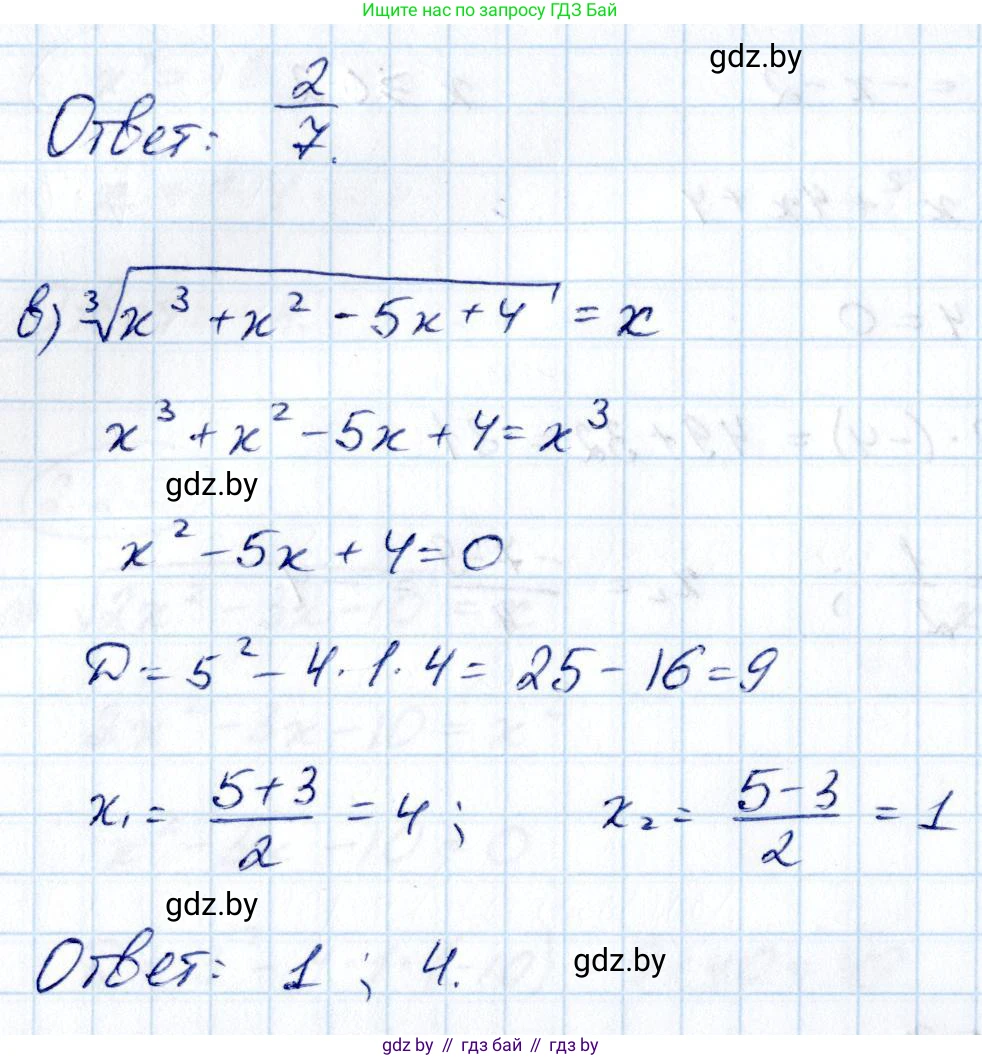 Ищите нас по запросу ГДЗ Бай
gdz.by
Ответ: 2/7.
в) ∛(x³ + x² - 5x + 4) = x
x³ + x² - 5x + 4 = x³
gdz.by
x² - 5x + 4 = 0
D = 5² - 4 · 1 · 4 = 25 - 16 = 9
x₁ = (5+3)/2 = 4 ; x₂ = (5-3)/2 = 1
gdz.by
Ответ: 1 ; 4.
gdz.by
gdz.by // гдз бай // гдз by